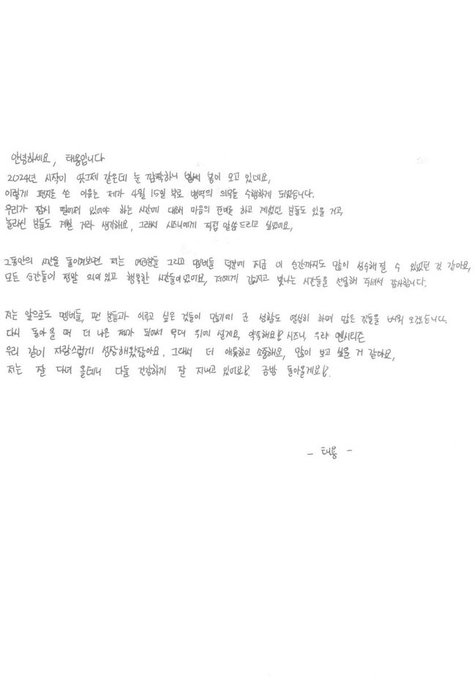 안녕하세요, 태용입니다
2024년 시작이 엊그제 같은데 눈 깜빡하니 벌써 봄이 오고 있네요,
이렇게 편지를 쓴 이유는 제가 4월 15일 부로 병역의 의무를 수행하게 되었습니다.
우리가 잠시 떨어져 있어야 하는 시간에 대해 마음의 준비를 하고 계셨던 분들도 있을 거고
놀라신 분들도 계실 거라 생각해요, 그래서 시즈니에게 직접 말씀드리고 싶었어요,
그동안의 시간을 돌이켜보면 저는 여러분들 그리고 멤버들 덕분에 지금 이 순간까지도 많이 성숙해질 수 있었던 것 같아요,
모든 순간들이 정말 의미있고 행복한 시간들이었어요, 저에게 값지고 빛나는 시간들을 선물해 주셔서 감사합니다.
저는 앞으로도 멤버들, 팬 분들과 이루고 싶은 것들이 많기에 군 생활도 열심히 하며 많은 것들을 배워 오겠습니다.
다시 돌아올 때 더 나은 제가 되어서 무대 위에 설게요, 약속해요! 시즈니, 우리 엔시티즌
우리 같이 자랑스럽게 성장해왔잖아요. 그래서 더 애틋하고 소중해요, 많이 보고 싶을 거 같아요,
저는 잘 다녀 올테니 다들 건강하게 잘 지내고 있어요! 금방 돌아올게요!
- 태용 -